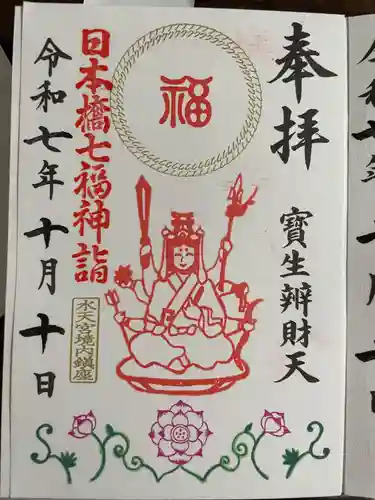 奉拝
寶生辨財天
福
日本橋七福神詣
水天宮境内鎮座
令和七年十月十日